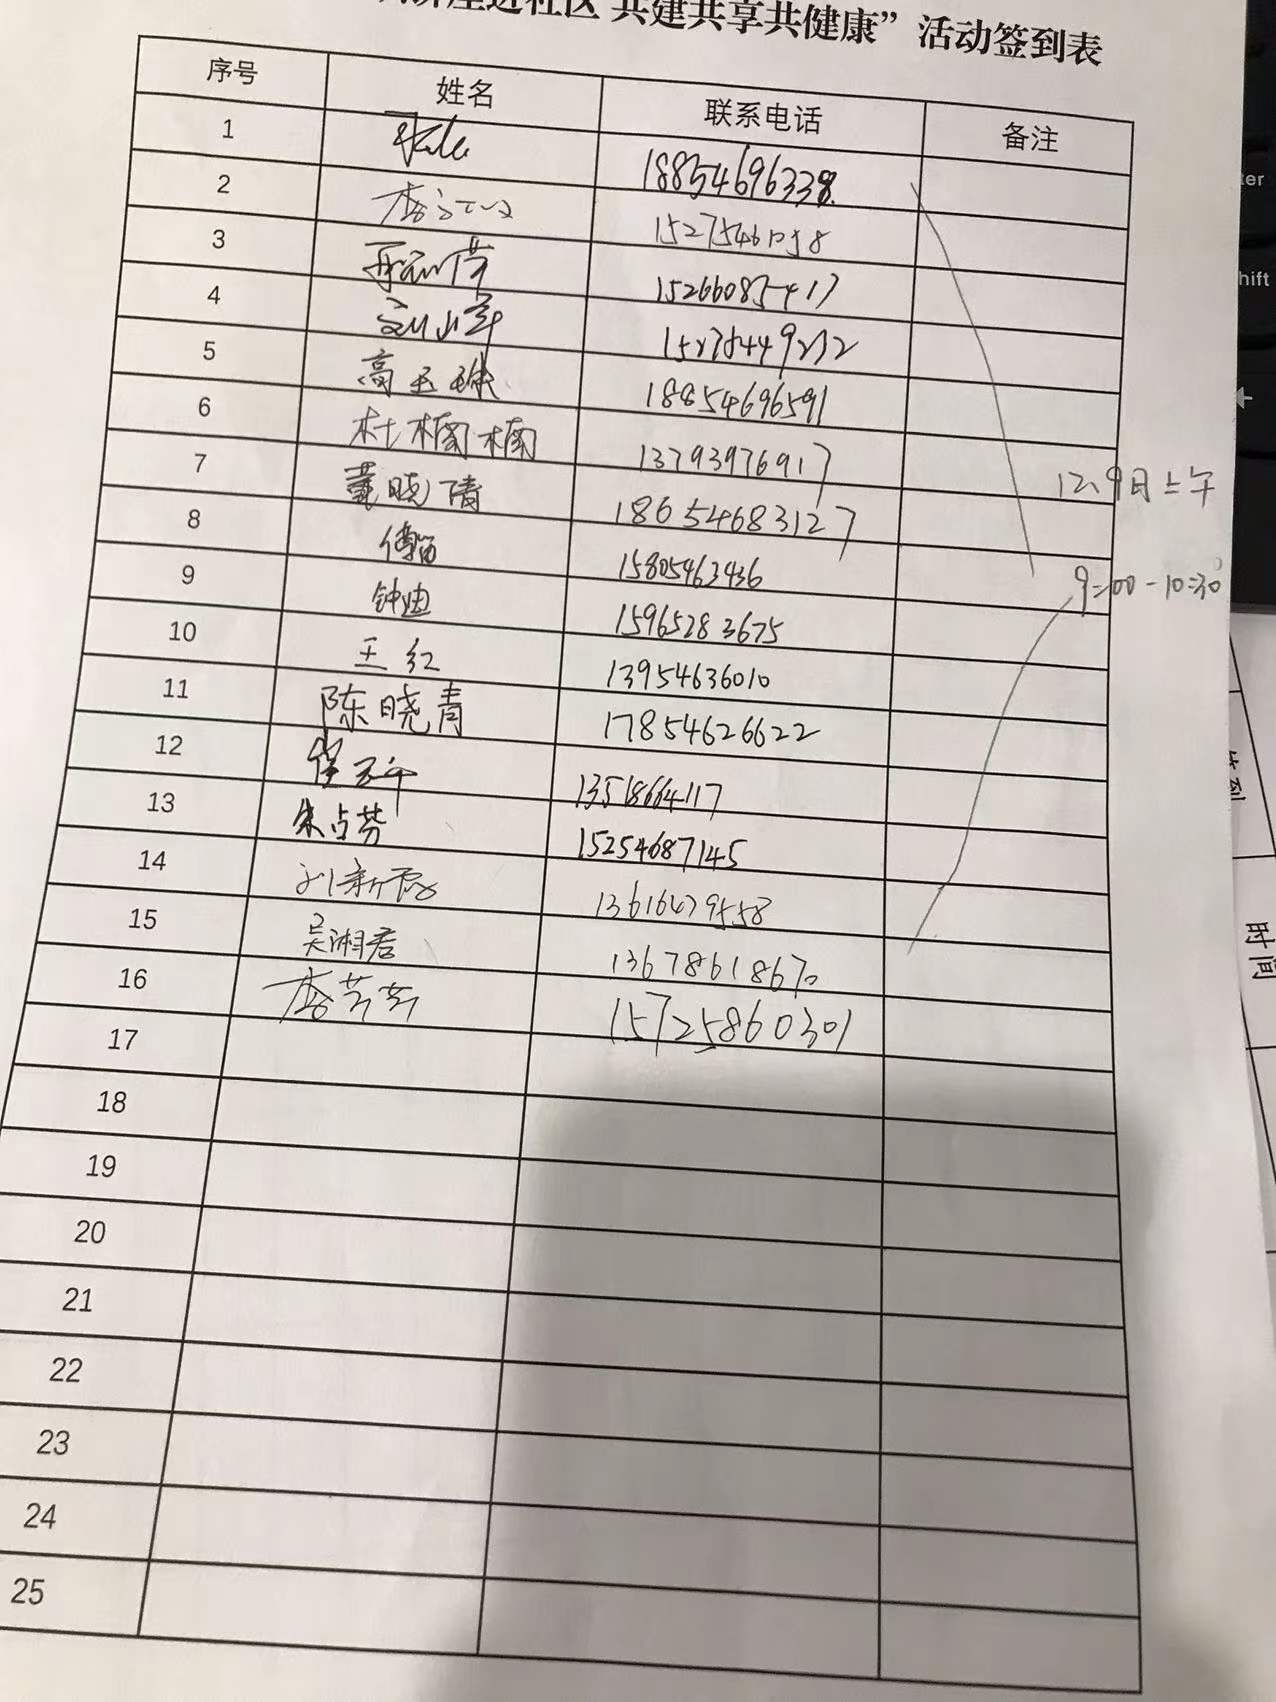 进社区 共建共享共健康”活动签到表
序号 姓名 联系电话 备注
1 18854696338
2
3 15266085417
4
5 高玉珠 18854696591
6 杜楠楠 13793976917
7 董晓倩 18654683127
12、9日上午
8 15805463436
9 钟迪 15965283675
9:00-10:30
10 王红 13954636010
11 陈晓青 17854626622
12 13518664117
13 朱占芬 15254687145
14 刘新霞 13616479558
15 吴湘君 13678618670
16 李芳芳 15725860301
17
18
19
20
21
22
23
24
25
时间
hift